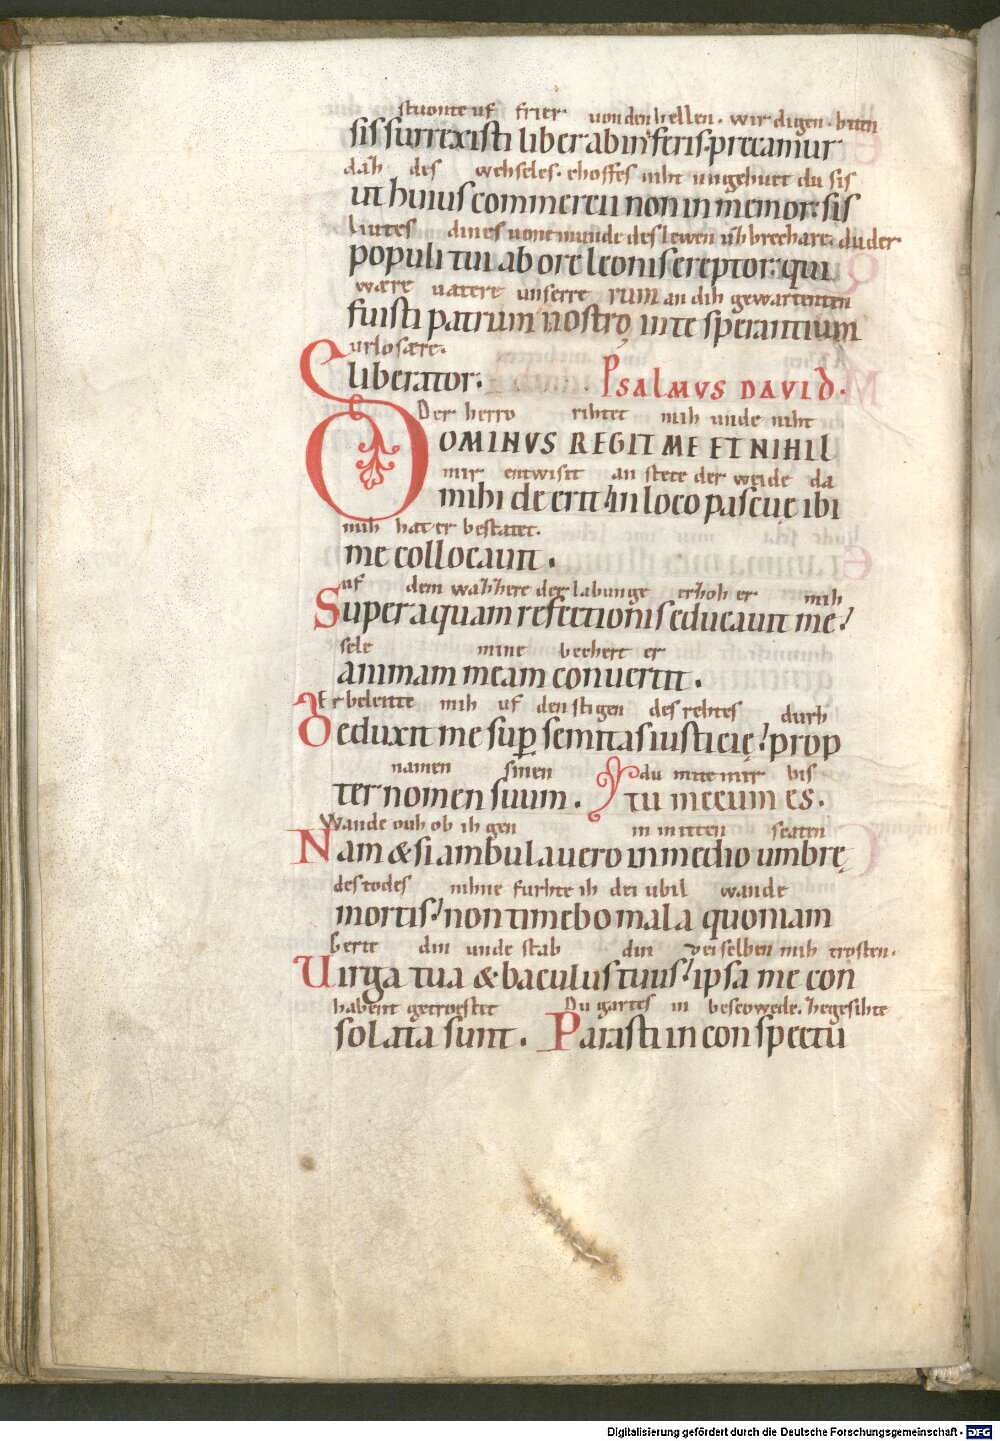 stuonte uf frier uon den hellen. wir digen. biten
sis surrexisti liber ab inferis. precamur
daƶ des wehseles. choffes niht ungehuet du sis
ut huius commercii non inmemor sis
liutes dines uone munde des lewen uƶbrechare. du der
populi tui ab ore leonis ereptor. qui
wære uatere unserre rum an dih gewartenten
fuisti patrum nostrꝍ in te sperantium
urlosære.
liberator. Psalmus David.
Der herro rihtet mih unde niht
Dominus regit me et nihil
mir entwisit an stete der weide da
mihi deerit in loco pascuę ibi
mih hat er bestatet.
me collocauit.
uf dem waƶƶere der labunge erhoh er mih
Super aquam refectionis educauit me
sele mine becheret er
animam meam conuertit.
Er beleitte mih uf den stigen des rehtes durh
Deduxit me sup semitas iusticię prop
namen sinen du mite mir bis
ter nomen suum. tu mecum es.
Wande ouh ob ih gen in mitten scatin
Nam & si ambulauero in medio umbrę
des todes nihne furhte ih dei ubil wande
mortis non timebo mala quoniam
Gerte din unde stab din dei selben mih trosten.
Uirga tua & baculus tuus ipsa me con
habent getroestet Du gartes in bescowede. ƶegesihte
solata sunt. Parasti in conspectu
Digitalisierung gefördert durch die Deutsche Forschungsgemeinschaft - DFG